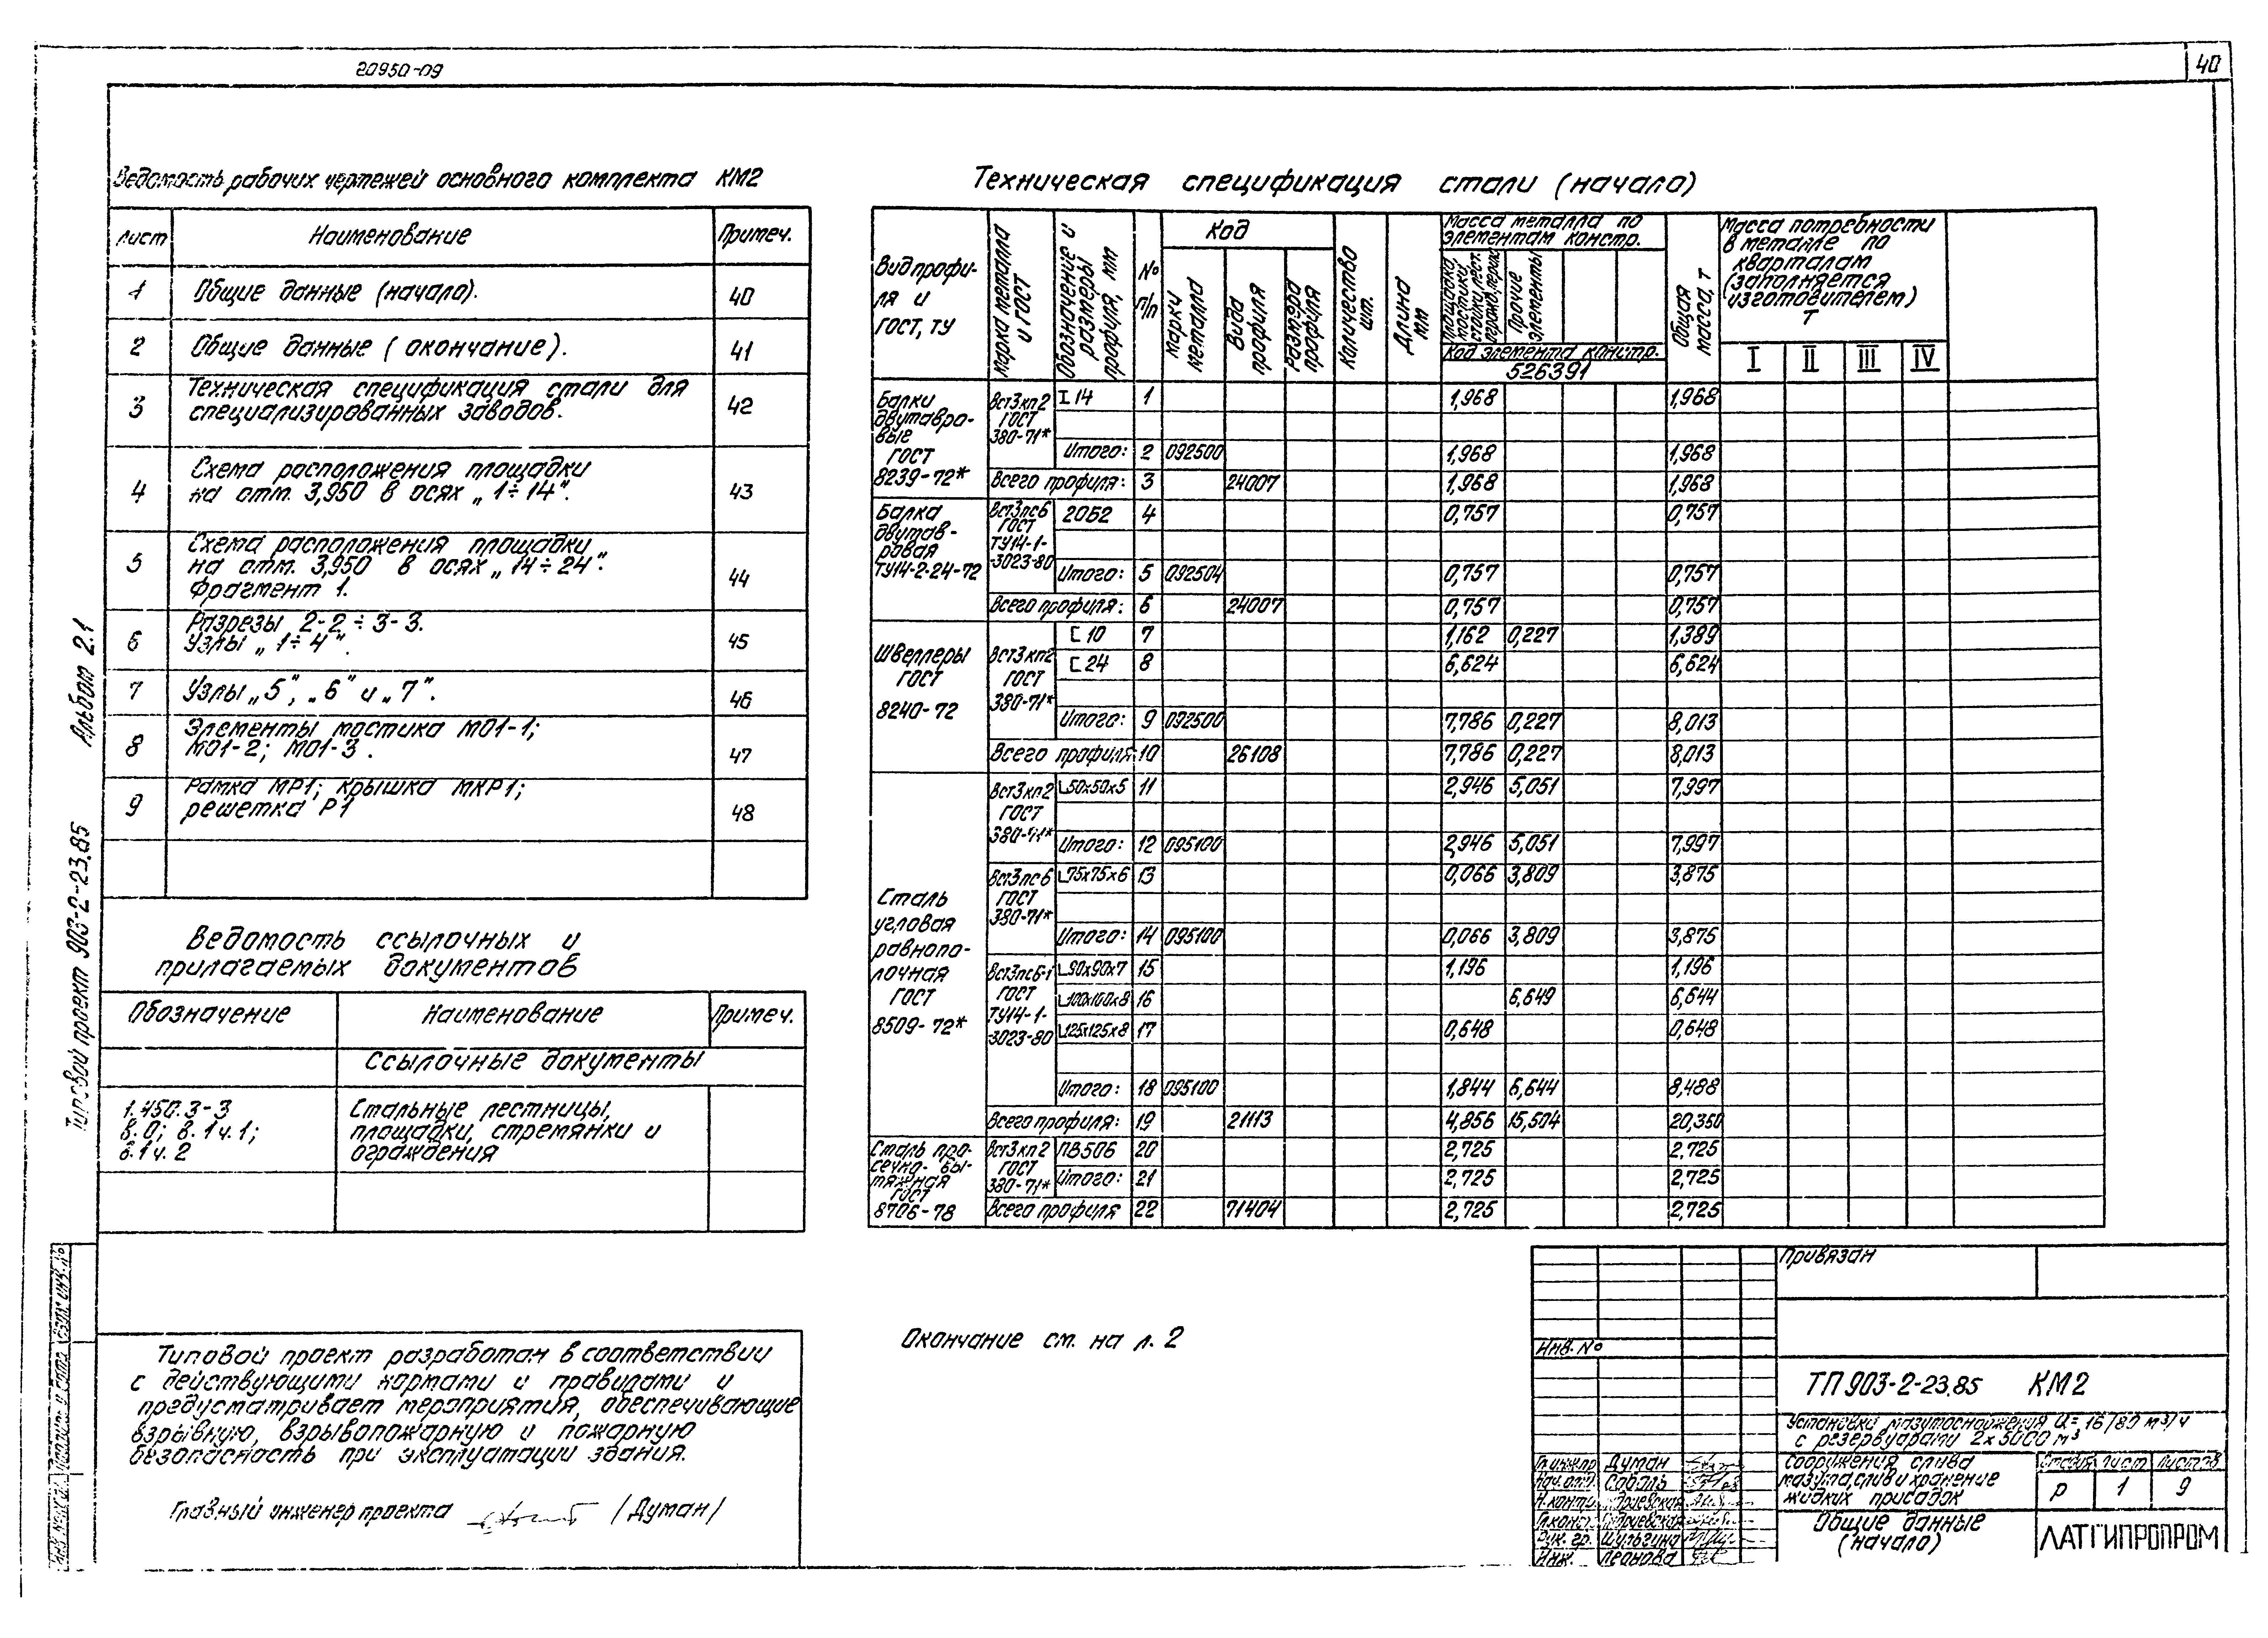 20950-09
40
Ведомость рабочих чертежей основного комплекта КМ2
Лист Наименование Примеч.
1 Общие данные (начало). 40
2 Общие данные (окончание). 41
3 Техническая спецификация стали для
специализированных заводов. 42
4 Схема расположения площадки
на отм. 3,950 в осях „1÷14". 43
5 Схема расположения площадки
на отм. 3,950 в осях „14÷24".
Фрагмент 1. 44
6 Разрезы 2-2 ÷ 3-3.
Узлы „1÷4". 45
7 Узлы „5", „6" и „7". 46
8 Элементы мостика МО1-1;
МО1-2; МО1-3. 47
9 Рамка МР1; крышка МКР1;
решетка Р1 48
Ведомость ссылочных и
прилагаемых документов
Обозначение Наименование Примеч.
Ссылочные документы
1.450.3-3
в.0; в.1ч.1;
в.1ч.2
Стальные лестницы,
площадки, стремянки и
ограждения
Типовой проект разработан в соответствии
с действующими нормами и правилами и
предусматривает мероприятия, обеспечивающие
взрывную, взрывопожарную и пожарную
безопасность при эксплуатации здания.
Главный инженер проекта /Думан/
Типовой проект 903-2-23.85 Альбом 2.1
Техническая спецификация стали (начало)
Вид профиля и ГОСТ, ТУ
Марка металла и ГОСТ
Обозначение и размеры профиля, мм
№ п/п
Код
марки металла
Вида профиля
Размера профиля
Количество шт.
Длина мм
Масса металла по
элементам констр.
Прочие элементы
Код элемента констр.
526391
Общая масса, т
Масса потребности
в металле по
кварталам
(заполняется
изготовителем)
т
I II III IV
Балки двутавро-
вые
ГОСТ
8239-72*
Вст3кп2
ГОСТ
380-71*
I 14 1 1,968 1,968
Итого: 2 092500 1,968 1,968
Всего профиля: 3 24007 1,968 1,968
Балка
двутав-
ровая
ТУ14-2-24-72
Вст3пс6
ГОСТ
ТУ14-1-
-3023-80
20Б2 4 0,757 0,757
Итого: 5 092504 0,757 0,757
Всего профиля: 6 24007 0,757 0,757
Швеллеры
ГОСТ
8240-72
Вст3кп2
ГОСТ
380-71*
[ 10 7 1,162 0,227 1,389
[ 24 8 6,624 6,624
Итого: 9 092500 7,786 0,227 8,013
Всего профиля 10 26108 7,786 0,227 8,013
Сталь
угловая
равнопо-
лочная
ГОСТ
8509-72*
Вст3кп2
ГОСТ
380-71*
∟50х50х5 11 2,946 5,051 7,997
Итого: 12 095100 2,946 5,051 7,997
Вст3пс6
ГОСТ
380-71*
∟75х75х6 13 0,066 3,809 3,875
Итого: 14 095100 0,066 3,809 3,875
Вст3пс6-1
ГОСТ
ТУ14-1-
-3023-80
∟90х90х7 15 1,196 1,196
∟100х100х8 16 6,649 6,644
∟125х125х8 17 0,648 0,648
Итого: 18 095100 1,844 6,644 8,488
Всего профиля: 19 21113 4,856 15,504 20,350
Сталь про-
сечно-вы-
тяжная
ГОСТ
8706-78
Вст3кп2
ГОСТ
380-71*
ПВ506 20 2,725 2,725
Итого: 21 2,725 2,725
Всего профиля 22 71404 2,725 2,725
Окончание см. на л. 2
Привязан
Инв. №
ТП 903-2-23.85 КМ2
Установка мазутоснабжения Q=16/80 м³/ч
с резервуарами 2х5000 м³
Гл.инж.пр. Думан
Нач.отд. Соболь
Н.контр.
Гл.конст.
Рук. гр. Шульгина
Инж. Леонова
Сооружения слива
мазута, слив и хранение
жидких присадок
Стадия Лист Листов
Р 1 9
Общие данные
(начало)
ЛАТГИПРОПРОМ